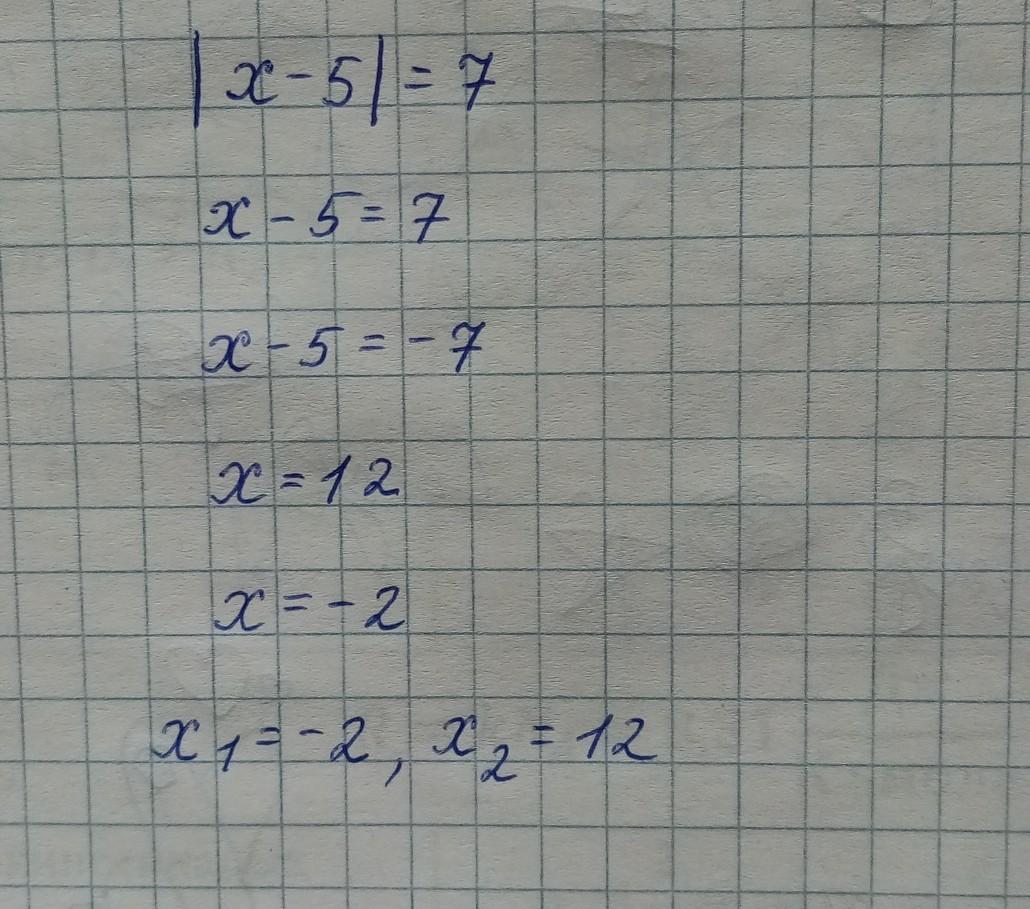 |x-5|=7
x-5=7
x-5=-7
x=12
x=-2
x₁=-2, x₂=12